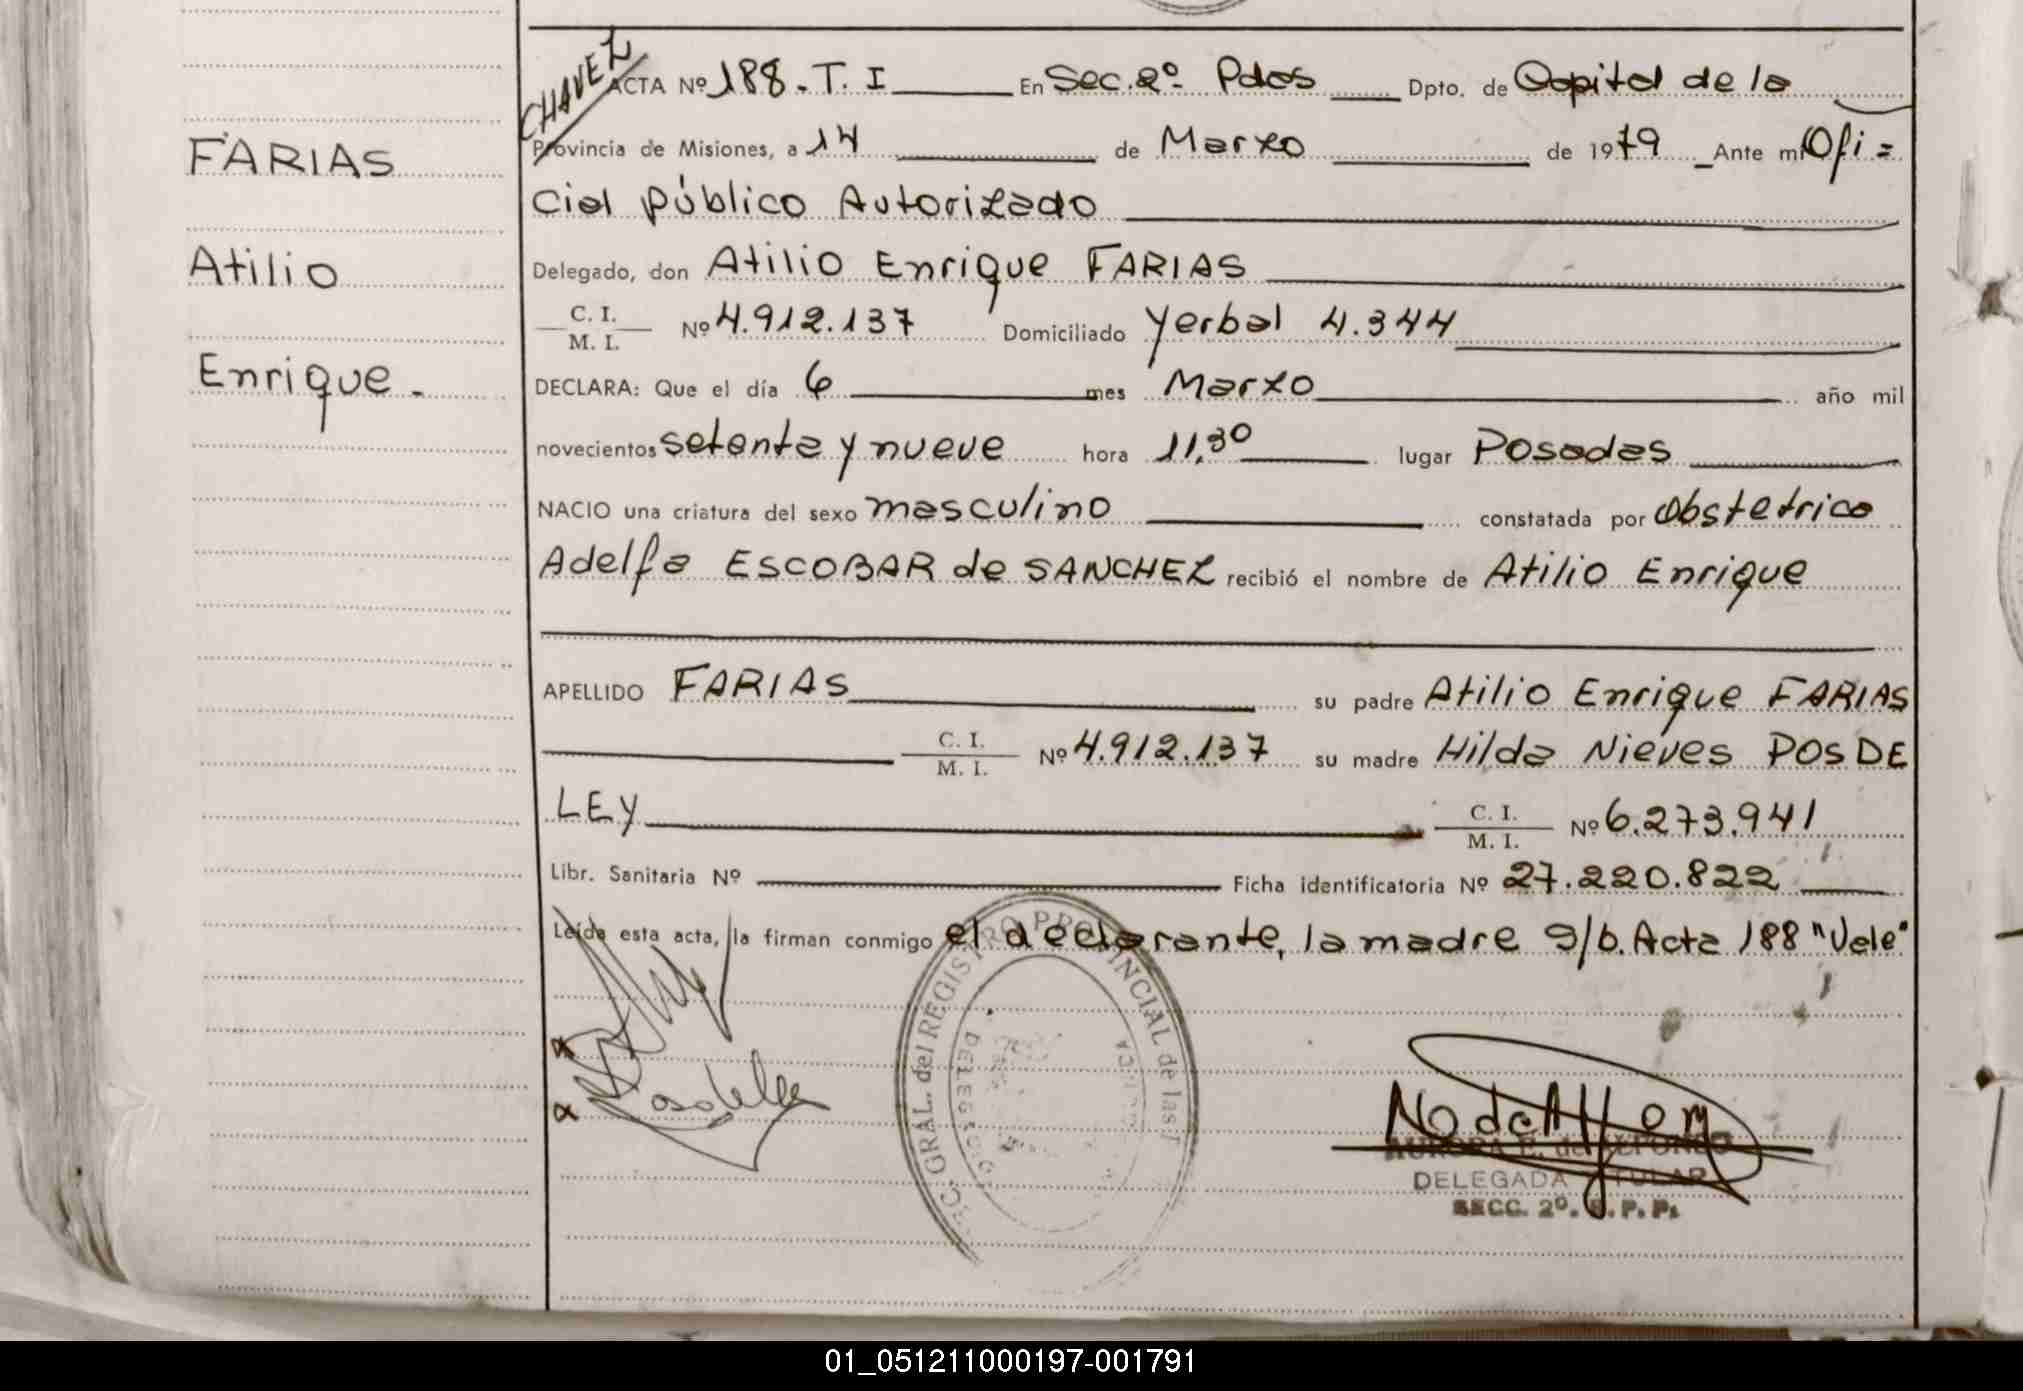 CHAVEZ
ACTA Nº 188. T. I En Sec. 2º Pdas Dpto. de Capital de la
Provincia de Misiones, a 14 de Marzo de 1979 Ante mi Ofi=
cial Público Autorizado
FARIAS
Atilio
Enrique.
Delegado, don Atilio Enrique FARIAS
C. I.
M. I. Nº 4.912.137 Domiciliado Yerbal 4.344
DECLARA: Que el día 6 mes Marzo año mil
novecientos setenta y nueve hora 11,30 lugar Posadas
NACIO una criatura del sexo masculino constatada por obstetrica
Adelfa ESCOBAR de SANCHEZ recibió el nombre de Atilio Enrique
APELLIDO FARIAS su padre Atilio Enrique FARIAS
C. I.
M. I. Nº 4.912.137 su madre Hilda Nieves POSDE
LEY C. I.
M. I. Nº 6.273.941
Libr. Sanitaria Nº Ficha identificatoria Nº 27.220.822
Leída esta acta, la firman conmigo el declarante, la madre s/b. Acta 188 "Vale"
GRAL. del REGISTRO PROVINCIAL de las
AURORA E. de ALFONSO
DELEGADA TITULAR
SECC. 2º. R. P. P.
01_051211000197-001791